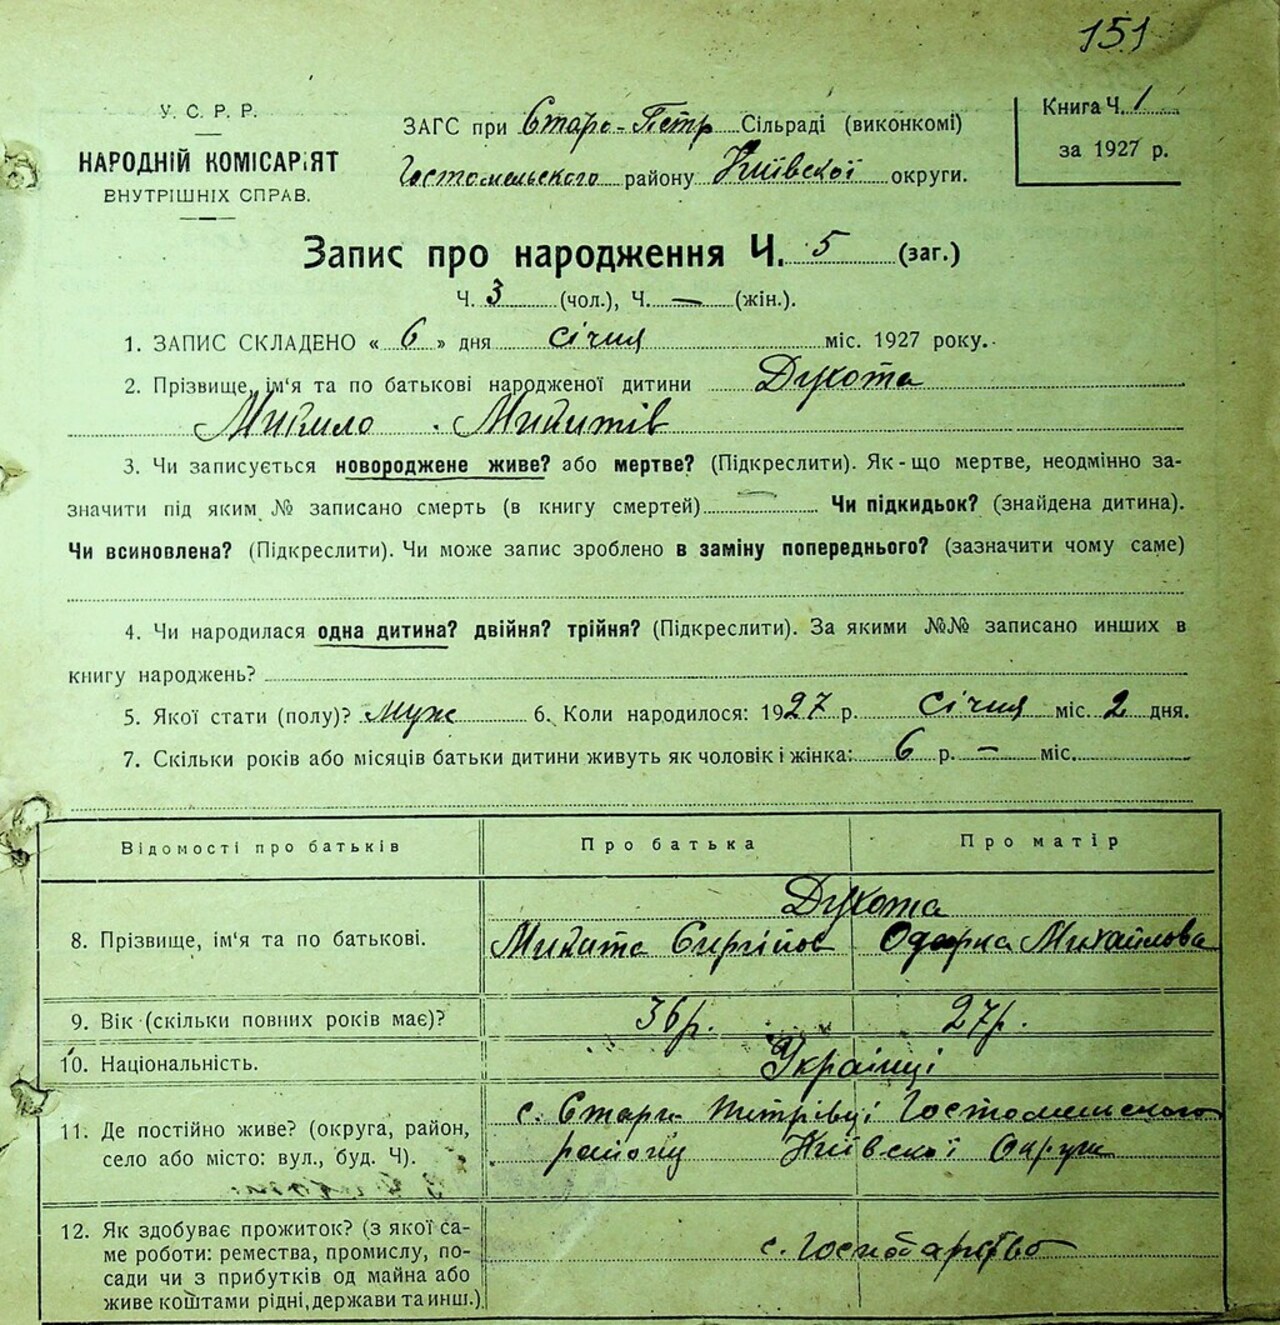 151
У. С. Р. Р.
НАРОДНІЙ КОМІСАРІЯТ
ВНУТРІШНІХ СПРАВ.
ЗАГС при Старо-Петр Сільраді (виконкомі)
Гостомельского району Київскої округи.
Книга Ч. 1
за 1927 р.
Запис про народження Ч. 5 (заг.)
Ч. 3 (чол.), Ч. — (жін.).
1. ЗАПИС СКЛАДЕНО « 6 » дня січня міс. 1927 року.
2. Прізвище, ім'я та по батькові народженої дитини Дукота
Микола Микитів
3. Чи записується новороджене живе? або мертве? (Підкреслити). Як-що мертве, неодмінно за-
значити під яким № записано смерть (в книгу смертей) — Чи підкидьок? (знайдена дитина).
Чи всиновлена? (Підкреслити). Чи може запис зроблено в заміну попереднього? (зазначити чому саме)
4. Чи народилася одна дитина? двійня? трійня? (Підкреслити). За якими №№ записано инших в
книгу народжень?
5. Якої стати (полу)? муж 6. Коли народилося: 1927 р. січня міс. 2 дня.
7. Скільки років або місяців батьки дитини живуть як чоловік і жінка: 6 р. — міс.
Відомості про батьків Про батька Про матір
8. Прізвище, ім'я та по батькові. Дукота
Микита Сиргійов Одарка Михайлова
9. Вік (скільки повних років має)? 36р. 27р.
10. Національність. Українці
11. Де постійно живе? (округа, район,
село або місто: вул., буд. Ч).
с. Стари Питрівці Гостомельского
району Київскої Округи
12. Як здобуває прожиток? (з якої са-
ме роботи: ремества, промислу, по-
сади чи з прибутків од майна або
живе коштами рідні, держави та инш.)
с. Господарство